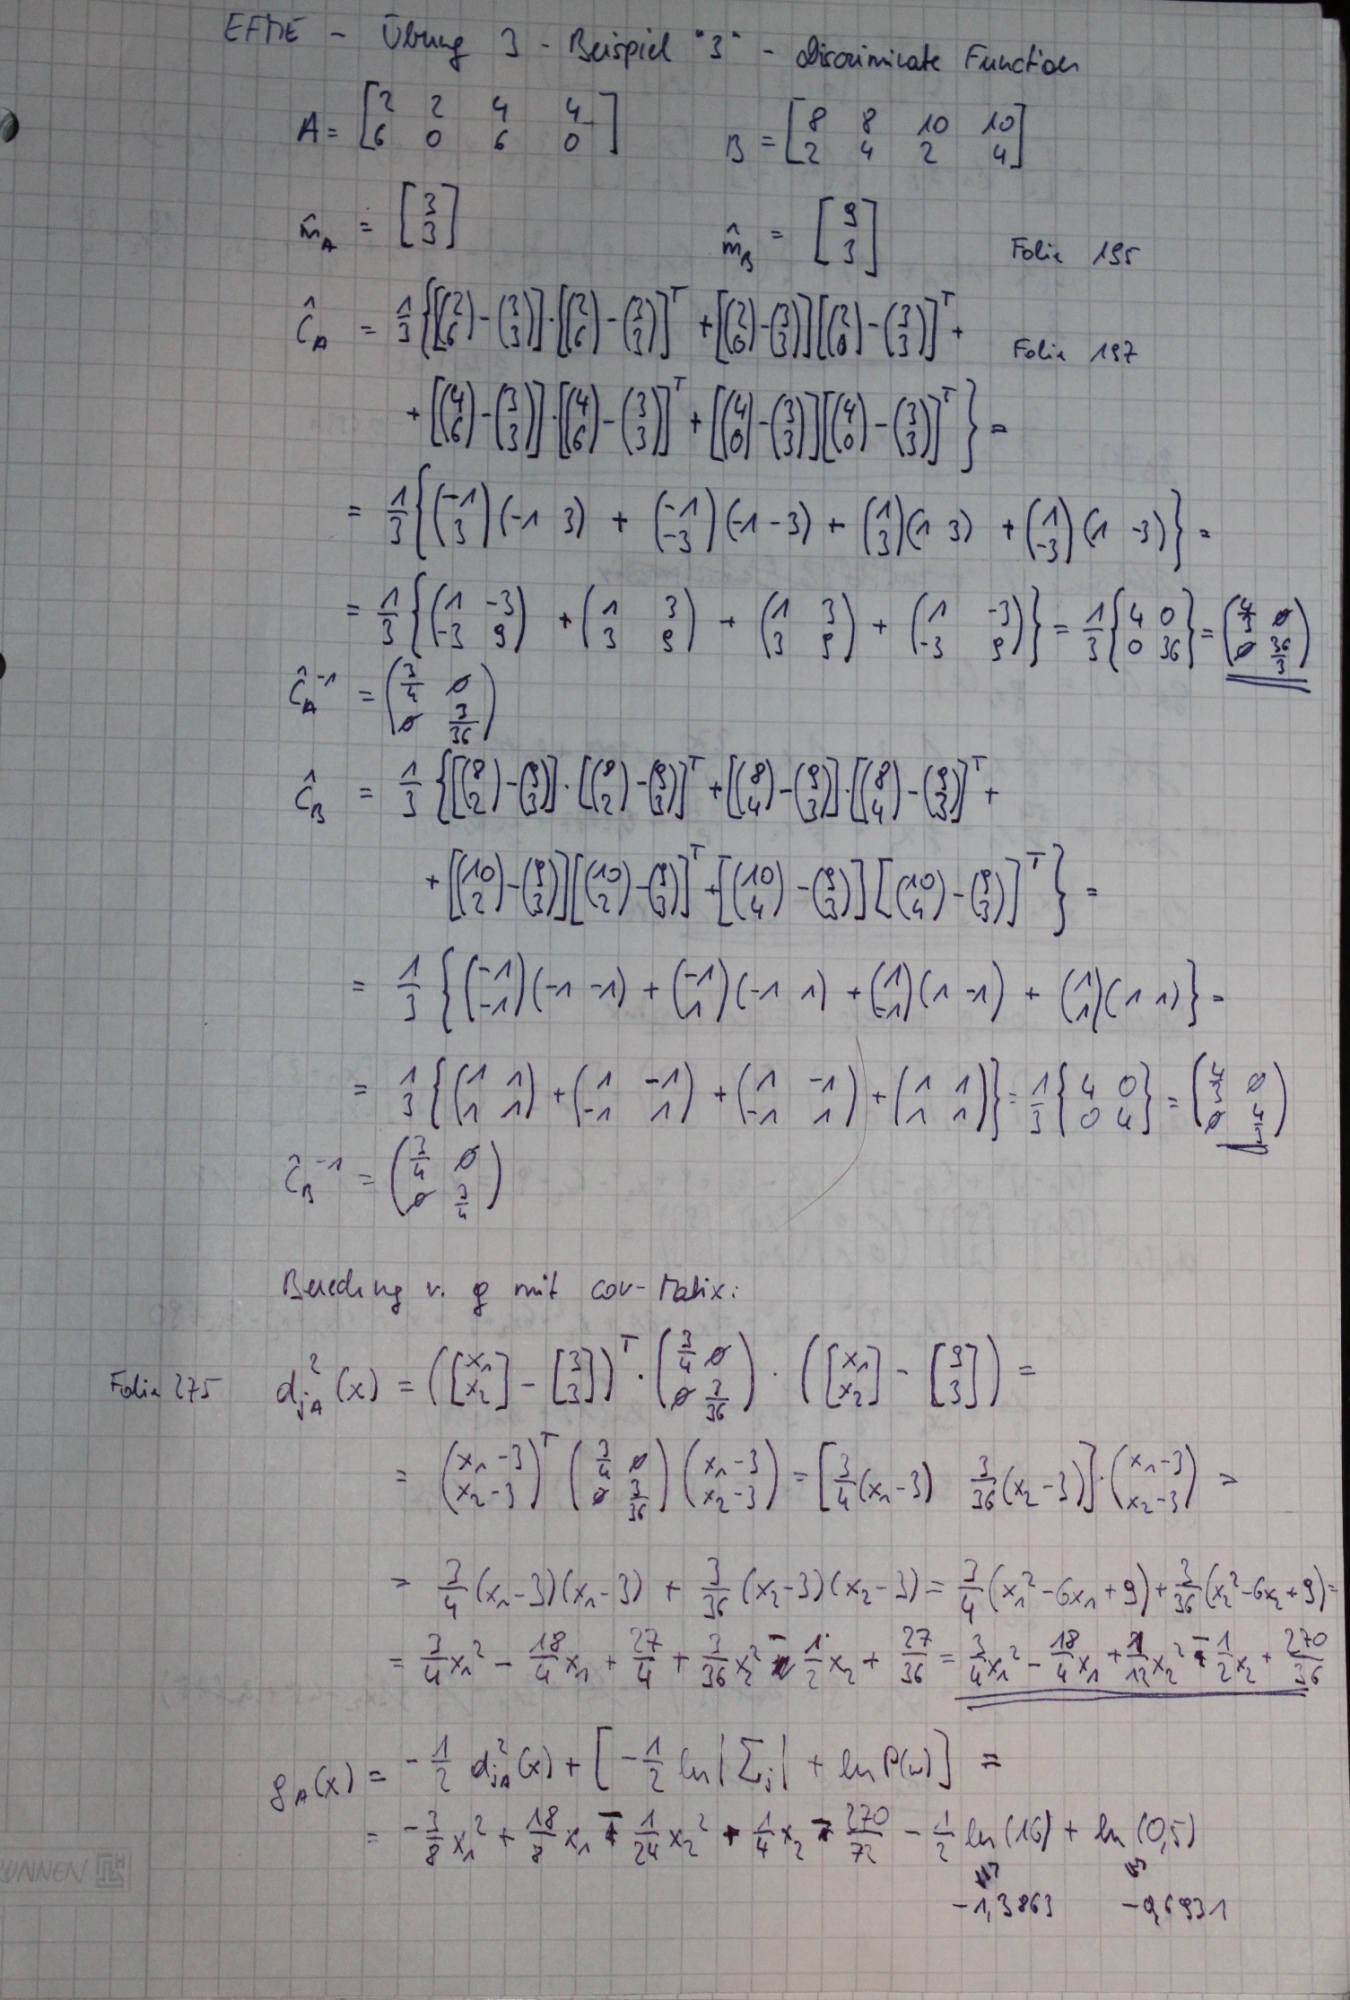 EFME - Übung 3 - Beispiel "3" - Discriminate Function
A = [2 2 4 4; 6 0 6 0] B = [8 8 10 10; 2 4 2 4]
m̂_A = [3; 3] m̂_B = [9; 3] Folie 195
Ĉ_A = 1/3 {[(2; 6) - (3; 3)] · [(2; 6) - (3; 3)]^T + [(2; 0) - (3; 3)] [(2; 0) - (3; 3)]^T + Folie 197
+ [(4; 6) - (3; 3)] · [(4; 6) - (3; 3)]^T + [(4; 0) - (3; 3)] [(4; 0) - (3; 3)]^T } =
= 1/3 {(-1; 3) (-1 3) + (-1; -3) (-1 -3) + (1; 3) (1 3) + (1; -3) (1 -3)} =
= 1/3 {(1 -3; -3 9) + (1 3; 3 9) + (1 3; 3 9) + (1 -3; -3 9)} = 1/3 {4 0; 0 36} = (4/3 0; 0 36/3)
Ĉ_A^-1 = (3/4 0; 0 3/36)
Ĉ_B = 1/3 {[(8; 2) - (9; 3)] · [(8; 2) - (9; 3)]^T + [(8; 4) - (9; 3)] · [(8; 4) - (9; 3)]^T +
+ [(10; 2) - (9; 3)] [(10; 2) - (9; 3)]^T + [(10; 4) - (9; 3)] [(10; 4) - (9; 3)]^T } =
= 1/3 {(-1; -1) (-1 -1) + (-1; 1) (-1 1) + (1; -1) (1 -1) + (1; 1) (1 1)} =
= 1/3 {(1 1; 1 1) + (1 -1; -1 1) + (1 -1; -1 1) + (1 1; 1 1)} = 1/3 {4 0; 0 4} = (4/3 0; 0 4/3)
Ĉ_B^-1 = (3/4 0; 0 3/4)
v. g mit cov-Matrix:
Folie 275 d_jA^2 (x) = ([x1; x2] - [3; 3])^T · (3/4 0; 0 3/36) · ([x1; x2] - [3; 3]) =
= (x1 - 3; x2 - 3)^T (3/4 0; 0 3/36) (x1 - 3; x2 - 3) = [3/4 (x1 - 3) 3/36 (x2 - 3)] · (x1 - 3; x2 - 3) =
= 3/4 (x1 - 3)(x1 - 3) + 3/36 (x2 - 3)(x2 - 3) = 3/4 (x1^2 - 6x1 + 9) + 3/36 (x2^2 - 6x2 + 9) =
= 3/4 x1^2 - 18/4 x1 + 27/4 + 3/36 x2^2 - 1/2 x2 + 27/36 = 3/4 x1^2 - 18/4 x1 + 1/12 x2^2 - 1/2 x2 + 270/36
g_A(x) = -1/2 d_jA^2 (x) + [-1/2 ln|Σ_j| + ln P(w)] =
= -3/8 x1^2 + 18/8 x1 - 1/24 x2^2 + 1/4 x2 - 270/72 - 1/2 ln(16) + ln(0,5)
-1,3863 -0,6931